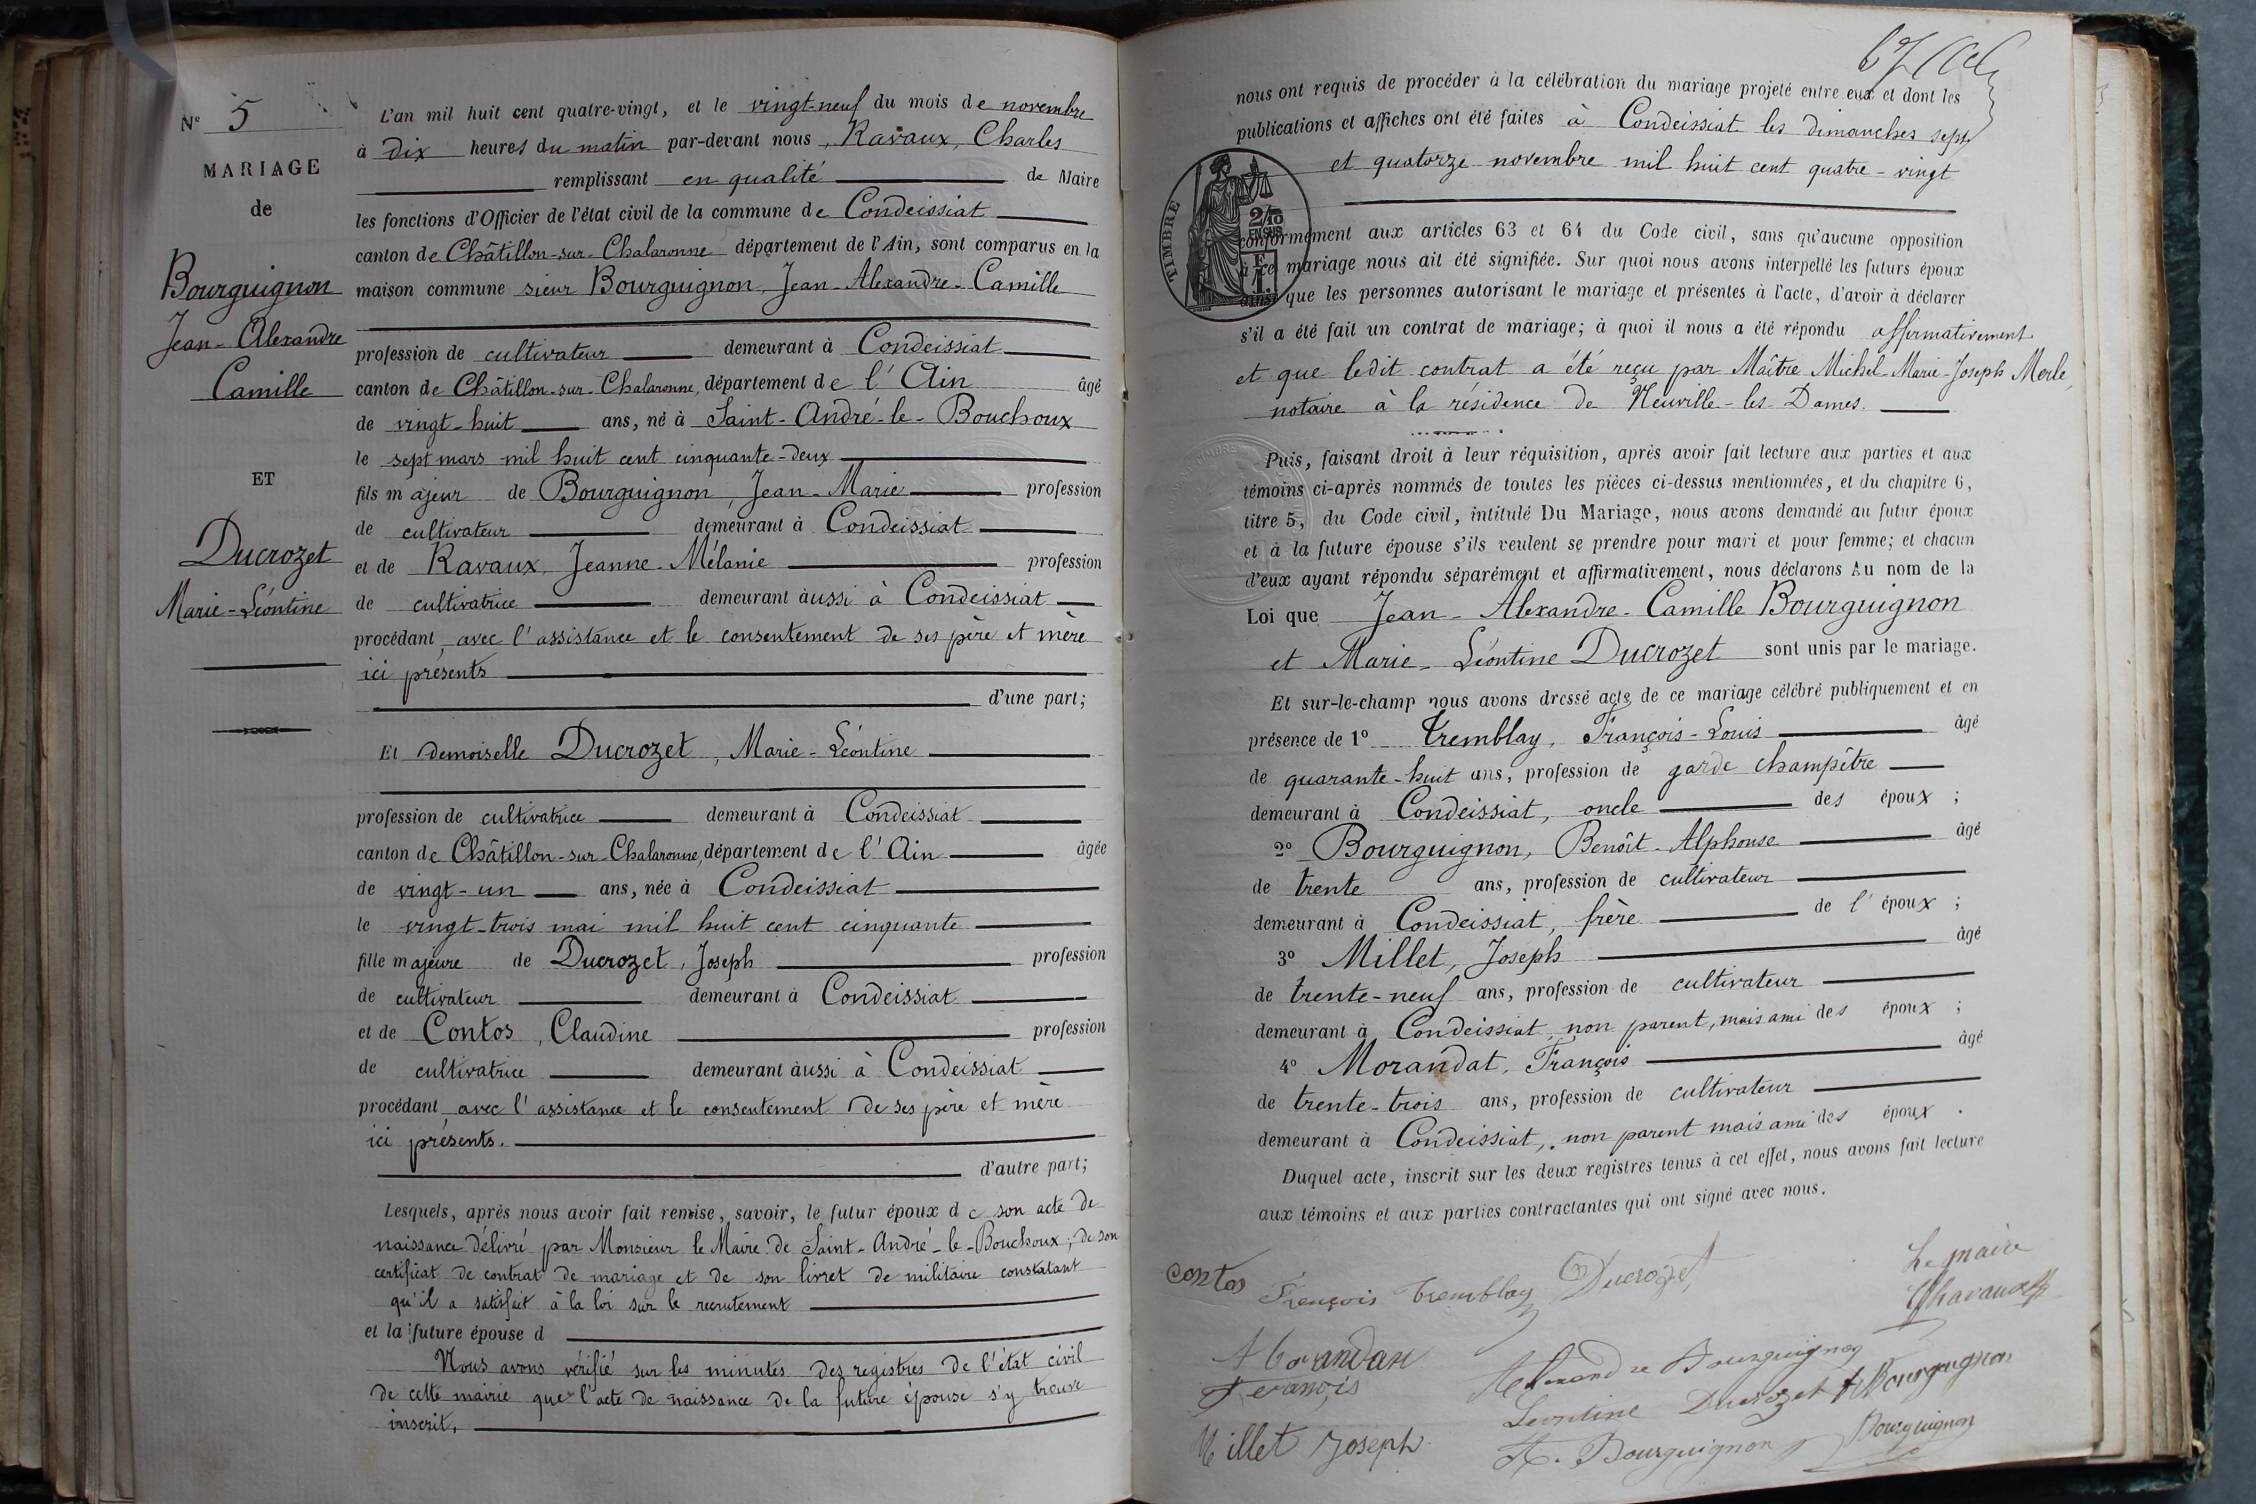 N° 5
MARIAGE
de
Bourguignon
Jean-Alexandre
Camille
ET
Ducrozet
Marie-Léontine
L'an mil huit cent quatre-vingt, et le vingt-neuf du mois de novembre
à dix heures du matin par-devant nous, Ravaux, Charles
remplissant en qualité de Maire
les fonctions d'Officier de l'état civil de la commune de Condeissiat
canton de Châtillon-sur-Chalaronne département de l'Ain, sont comparus en la
maison commune sieur Bourguignon, Jean-Alexandre-Camille
profession de cultivateur demeurant à Condeissiat
canton de Châtillon-sur-Chalaronne, département de l'Ain âgé
de vingt-huit ans, né à Saint-André-le-Bouchoux
le sept mars mil huit cent cinquante-deux
fils majeur de Bourguignon, Jean-Marie profession
de cultivateur demeurant à Condeissiat
et de Ravaux, Jeanne-Mélanie profession
de cultivatrice demeurant aussi à Condeissiat
procédant avec l'assistance et le consentement de ses père et mère
ici présents
d'une part;
Et demoiselle Ducrozet, Marie-Léontine
profession de cultivatrice demeurant à Condeissiat
canton de Châtillon-sur-Chalaronne, département de l'Ain âgée
de vingt-un ans, née à Condeissiat
le vingt-trois mai mil huit cent cinquante
fille majeure de Ducrozet, Joseph profession
de cultivateur demeurant à Condeissiat
et de Contos, Claudine profession
de cultivatrice demeurant aussi à Condeissiat
procédant avec l'assistance et le consentement de ses père et mère
ici présents.
d'autre part;
Lesquels, après nous avoir fait remise, savoir, le futur époux de son acte de
naissance délivré par Monsieur le Maire de Saint-André-le-Bouchoux; de son
certificat de contrat de mariage et de son livret de militaire constatant
qu'il a satisfait à la loi sur le recrutement
et la future épouse d
Nous avons vérifié sur les minutes des registres de l'état civil
de cette mairie que l'acte de naissance de la future épouse s'y trouve
inscrit.
67
nous ont requis de procéder à la célébration du mariage projeté entre eux et dont les
publications et affiches ont été faites à Condeissiat les dimanches sept
et quatorze novembre mil huit cent quatre-vingt
TIMBRE
2/10
EN SUS
conformément aux articles 63 et 64 du Code civil, sans qu'aucune opposition
à ce mariage nous ait été signifiée. Sur quoi nous avons interpellé les futurs époux
ainsi que les personnes autorisant le mariage et présentes à l'acte, d'avoir à déclarer
s'il a été fait un contrat de mariage; à quoi il nous a été répondu affirmativement
et que ledit contrat a été reçu par Maître Michel-Marie-Joseph Merle,
notaire à la résidence de Neuville-les-Dames.
Puis, faisant droit à leur réquisition, après avoir fait lecture aux parties et aux
témoins ci-après nommés de toutes les pièces ci-dessus mentionnées, et du chapitre 6,
titre 5, du Code civil, intitulé Du Mariage, nous avons demandé au futur époux
et à la future épouse s'ils veulent se prendre pour mari et pour femme; et chacun
d'eux ayant répondu séparément et affirmativement, nous déclarons Au nom de la
Loi que Jean-Alexandre-Camille Bourguignon
et Marie-Léontine Ducrozet sont unis par le mariage.
Et sur-le-champ nous avons dressé acte de ce mariage célébré publiquement et en
présence de 1° Tremblay, François-Louis âgé
de quarante-huit ans, profession de garde champêtre
demeurant à Condeissiat, oncle des époux;
2° Bourguignon, Benoît-Alphonse âgé
de trente ans, profession de cultivateur
demeurant à Condeissiat, frère de l'époux;
3° Millet, Joseph âgé
de trente-neuf ans, profession de cultivateur
demeurant à Condeissiat, non parent, mais ami des époux;
4° Morandat, François âgé
de trente-trois ans, profession de cultivateur
demeurant à Condeissiat, non parent mais ami des époux.
Duquel acte, inscrit sur les deux registres tenus à cet effet, nous avons fait lecture
aux témoins et aux parties contractantes qui ont signé avec nous.
contos François tremblay Ducrozet Le maire
Morandat
François
Alexandre Bourguignon
Leontine Ducrozet Bourguignon
Millet Joseph A. Bourguignon Bourguignon